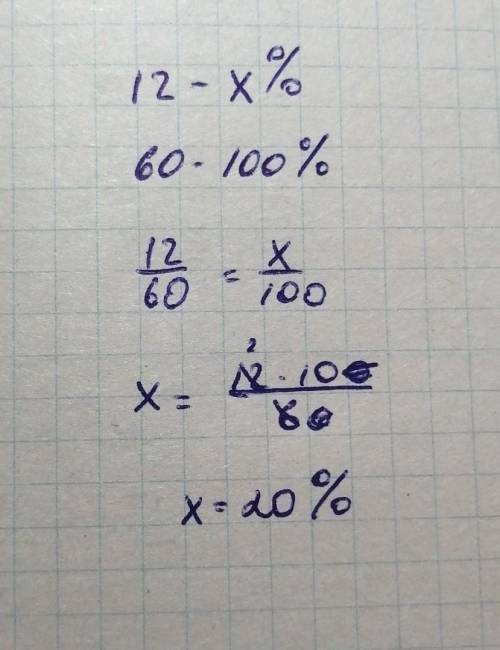 12 - x%
60 - 100%
12/60 = x/100
x = 12 · 100/60 2
x = 20%